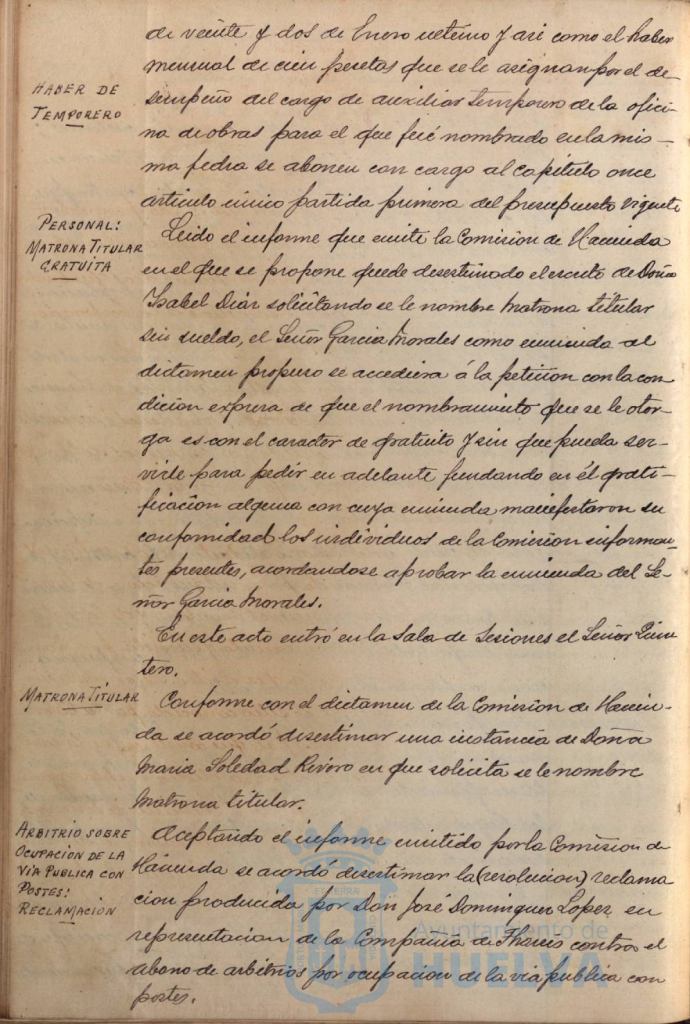 de veinte y dos de Enero ultimo y asi como el haber
HABER DE
TEMPORERO
mensual de cien pesetas que se le asignan por el de
sempeño del cargo de auxiliar temporero de la ofici
na de obras para el que fué nombrado en la mis-
ma fecha se abonen con cargo al capitulo once
articulo unico partida primera del presupuesto vigente
PERSONAL:
MATRONA TITULAR
GRATUITA
Leido el informe que emite la Comision de Hacienda
en el que se propone quede desestimado el escrito de Doña
Isabel Diaz solicitando se le nombre Matrona titular
sin sueldo, el Señor Garcia Morales como enmienda al
dictamen propuso se accediera á la peticion con la con
dicion expresa de que el nombramiento que se le otor-
ga es con el caracter de gratuito y sin que pueda ser-
virle para pedir en adelante fundando en él grati-
ficacion alguna con cuya enmienda manifestaron su
conformidad los individuos de la Comision informan-
tes presentes, acordandose aprobar la enmienda del Se-
ñor Garcia Morales.
En este acto entró en la Sala de Sesiones el Señor Quin
tero.
MATRONA TITULAR
Conforme con el dictamen de la Comision de Hacien-
da se acordó desestimar una instancia de Doña
Maria Soledad Rivero en que solicita se le nombre
Matrona titular.
ARBITRIO SOBRE
OCUPACION DE LA
VIA PUBLICA CON
POSTES:
RECLAMACIÓN
Aceptando el informe emitido por la Comision de
Hacienda se acordó desestimar la (resolucion) reclama
cion producida por Don José Dominguez Lopez en
representacion de la Compañia de Tharsis contra el
abono de arbitrios por ocupacion de la via publica con
postes.
Ayuntamiento de
HUELVA